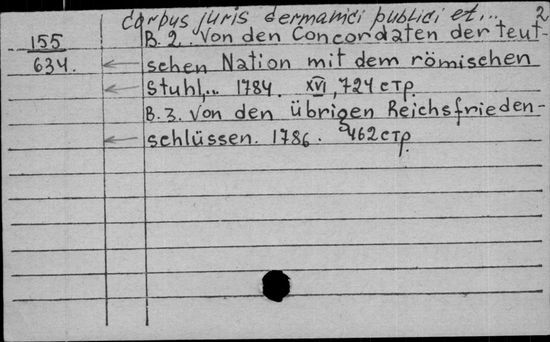 Corpus juris Germanici publici et... 2
155 B. 2. Von den Concordaten der teut-
634. schen Nation mit dem römischen
Stuhl,... 1784. XVI, 724 стр.
B. 3. Von den übrigen Reichsfrieden-
schlüssen. 1786. 462 стр.